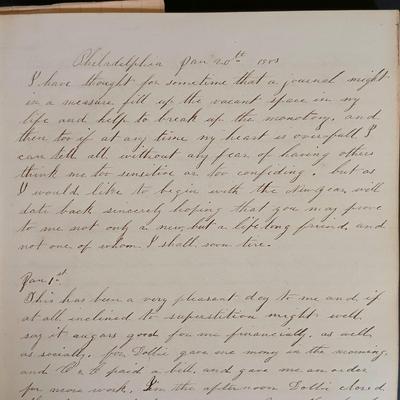 Philadelphia Jan 20th 1883
I have thought for sometime that a journal might
in a measure fill up the vacant space in my
life and help to break up the monotony, and
then too if at any time my heart is overfull I
can tell all without any fear of having others
think me too sensitive or too confiding. but as
I would like to begin with the New Year will
date back sincerely hoping that you may prove
to me not only a new, but a lifelong friend, and
not one of whom I shall soon tire.
Jan 1st
This has been a very pleasant day to me and if
at all inclined to superstition might well
say it augurs good for me financially, as well
as socially, for Dottie gave me money in the morning,
and paid a bill, and gave me an order
for more work. In the afternoon Dottie closed